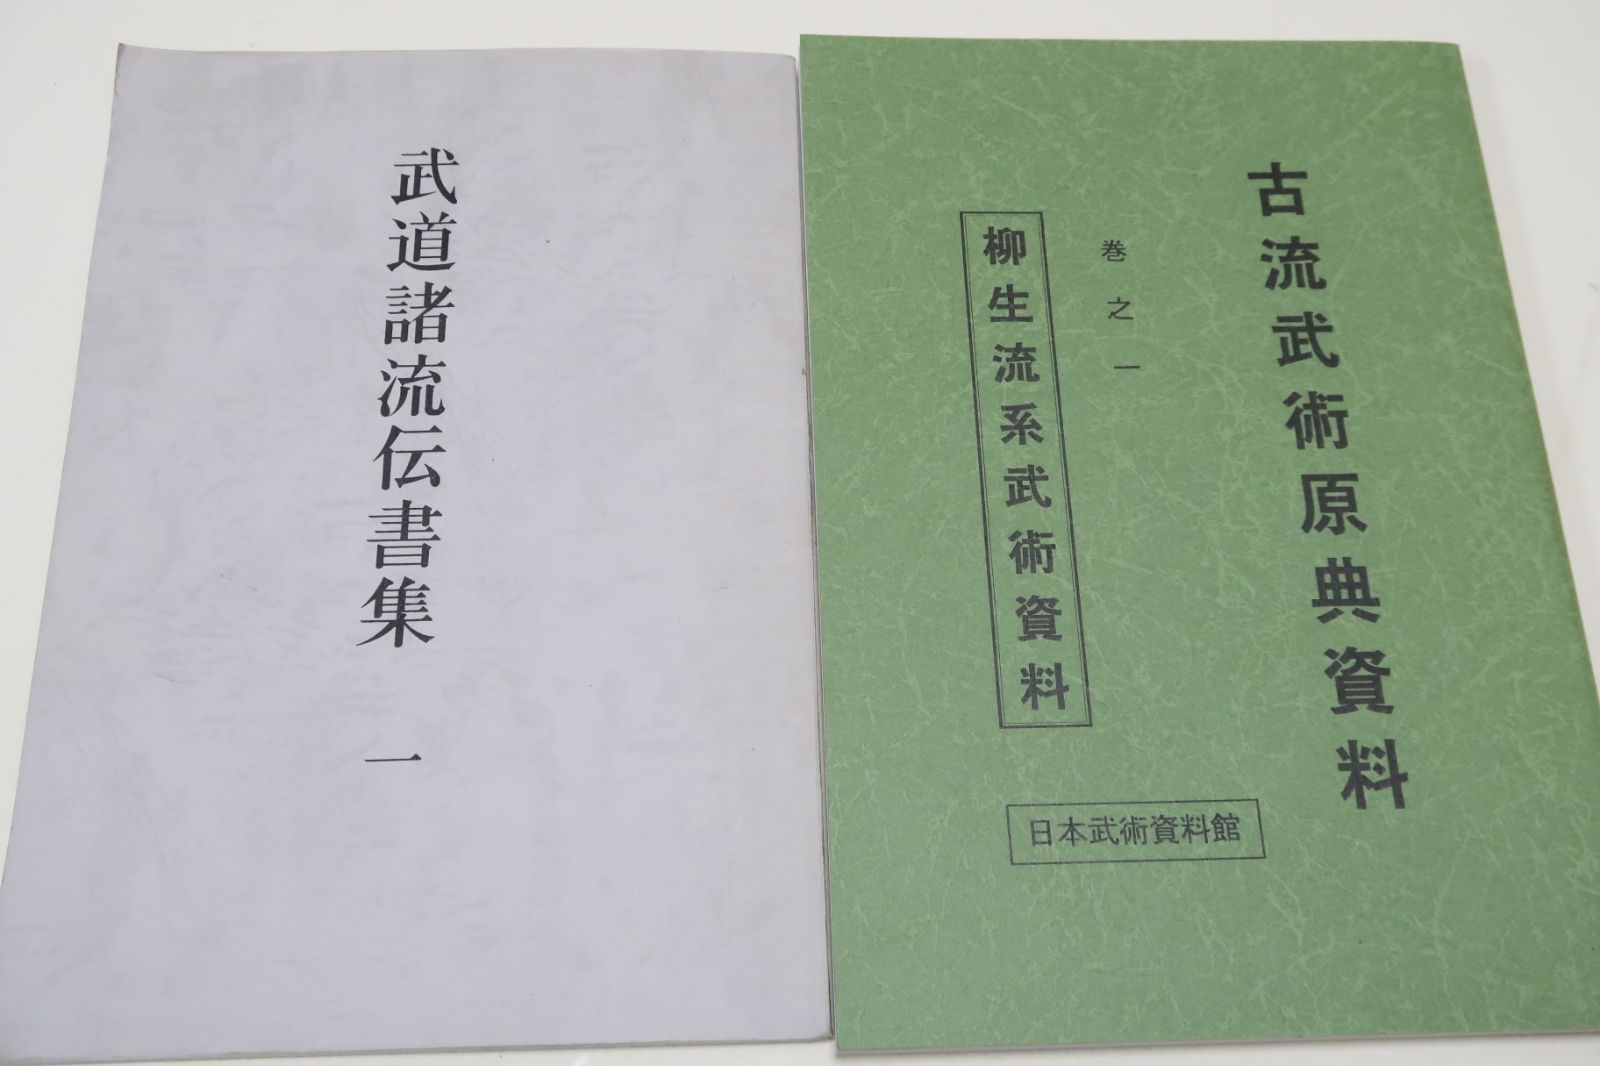 武道諸流伝書集 一
古流武術原典資料
巻之一
柳生流系武術資料
日本武術資料館